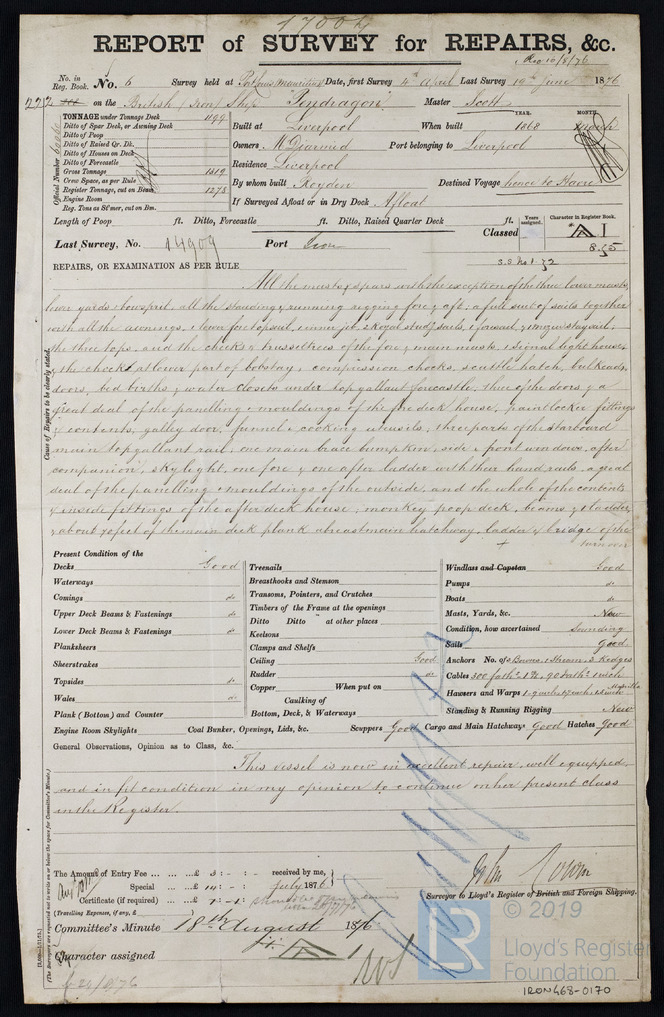 REPORT of SURVEY for REPAIRS, &c.
Rec 16/8/76
No. in Reg. Book. No. 6 Survey held at Port Louis Mauritius Date, first Survey 4th April Last Survey 19th June 1876
222 on the British Iron Ship Pendragon Master Scott
TONNAGE under Tonnage Deck 1199
Ditto of Spar Deck, or Awning Deck
Ditto of Poop
Ditto of Raised Qr. Dk.
Ditto of Houses on Deck
Ditto of Forecastle
Gross Tonnage 1312
Crew Space, as per Rule
Register Tonnage, cut on Beam 1275
Engine Room
Reg. Tons as St'mer, cut on Bm.
Official Number
Built at Liverpool When built YEAR. 1868 MONTH.
Owners McDiarmid Port belonging to Liverpool
Residence Liverpool
By whom built Royden Destined Voyage hence to Havre
If Surveyed Afloat or in Dry Dock Afloat
Length of Poop ft. Ditto, Forecastle ft. Ditto, Raised Quarter Deck ft.
Classed Years assigned. Character in Register Book. A 1
8.75
Last Survey, No. 14909 Port
S.S. No 1-72
REPAIRS, OR EXAMINATION AS PER RULE
Cause of Repairs to be clearly stated.
All the masts & spars with the exception of the three lower masts,
lower yards & bowsprit, all the standing & running rigging fore & aft, a full suit of sails together
with all the awnings, 1 lower fore topsail, 1 inner jib 2 Royal studg sails, 1 foresail & 1 mizen staysail,
the three tops, and the cheeks & trusseltrees of the fore & main masts, 1 signal light house,
the chocks at lower part of bobstay, compression chocks, scuttle hatch, bulkheads,
doors, bed births & water closets under topgallant forecastle, three of the doors & a
great deal of the panelling & mouldings of the fore deck house, paint locker fittings
& contents, galley door, funnel & cooking utensils, three parts of the starboard
main topgallant rail, one main brace bumpkin, side & front windows, after
companion, skylight, one fore & one after ladder with their hand rails, a great
deal of the panelling & mouldings of the outside, and the whole of the contents
& inside fittings of the after deck house, monkey poop deck, beams & ladder
& about 70 feet of the main deck plank abreast main hatchway, ladder & bridge of the
turn over
Present Condition of the
Decks Good
Waterways
Comings do
Upper Deck Beams & Fastenings do
Lower Deck Beams & Fastenings do
Planksheers
Sheerstrakes
Topsides do
Wales do
Plank (Bottom) and Counter
Treenails
Breasthooks and Stemson
Transoms, Pointers, and Crutches
Timbers of the Frame at the openings
Ditto Ditto at other places
Keelsons
Clamps and Shelfs
Ceiling Good
Rudder do
Copper When put on
Caulking of
Bottom, Deck, & Waterways
Windlass and Capstan Good
Pumps do
Boats do
Masts, Yards, &c. New
Condition, how ascertained Sounding
Sails Good
Anchors No. of 3 Bower 1 Stream 2 Kedges
Cables 300 fath
Hawsers and Warps
Standing & Running Rigging New
Engine Room Skylights Coal Bunker, Openings, Lids, &c. Scuppers Good Cargo and Main Hatchways Good Hatches Good
General Observations, Opinion as to Class, &c.
This vessel is now in excellent repair, well equipped
and in fit condition in my opinion to continue on her present class
in the Register.
(The Surveyors are requested not to write on or below the space for Committee's Minute.)
The Amount of Entry Fee £ 3 : - : - received by me,
Special £ 14 : - : - July 1876
Certificate (if required) £
(Travelling Expenses, if any, £ )
John Cowin
Surveyor to Lloyd's Register of British and Foreign Shipping.
Committee's Minute 18th August 1876
Character assigned A 1
© 2019
LR
Lloyd's Register
Foundation
IRON468-0170